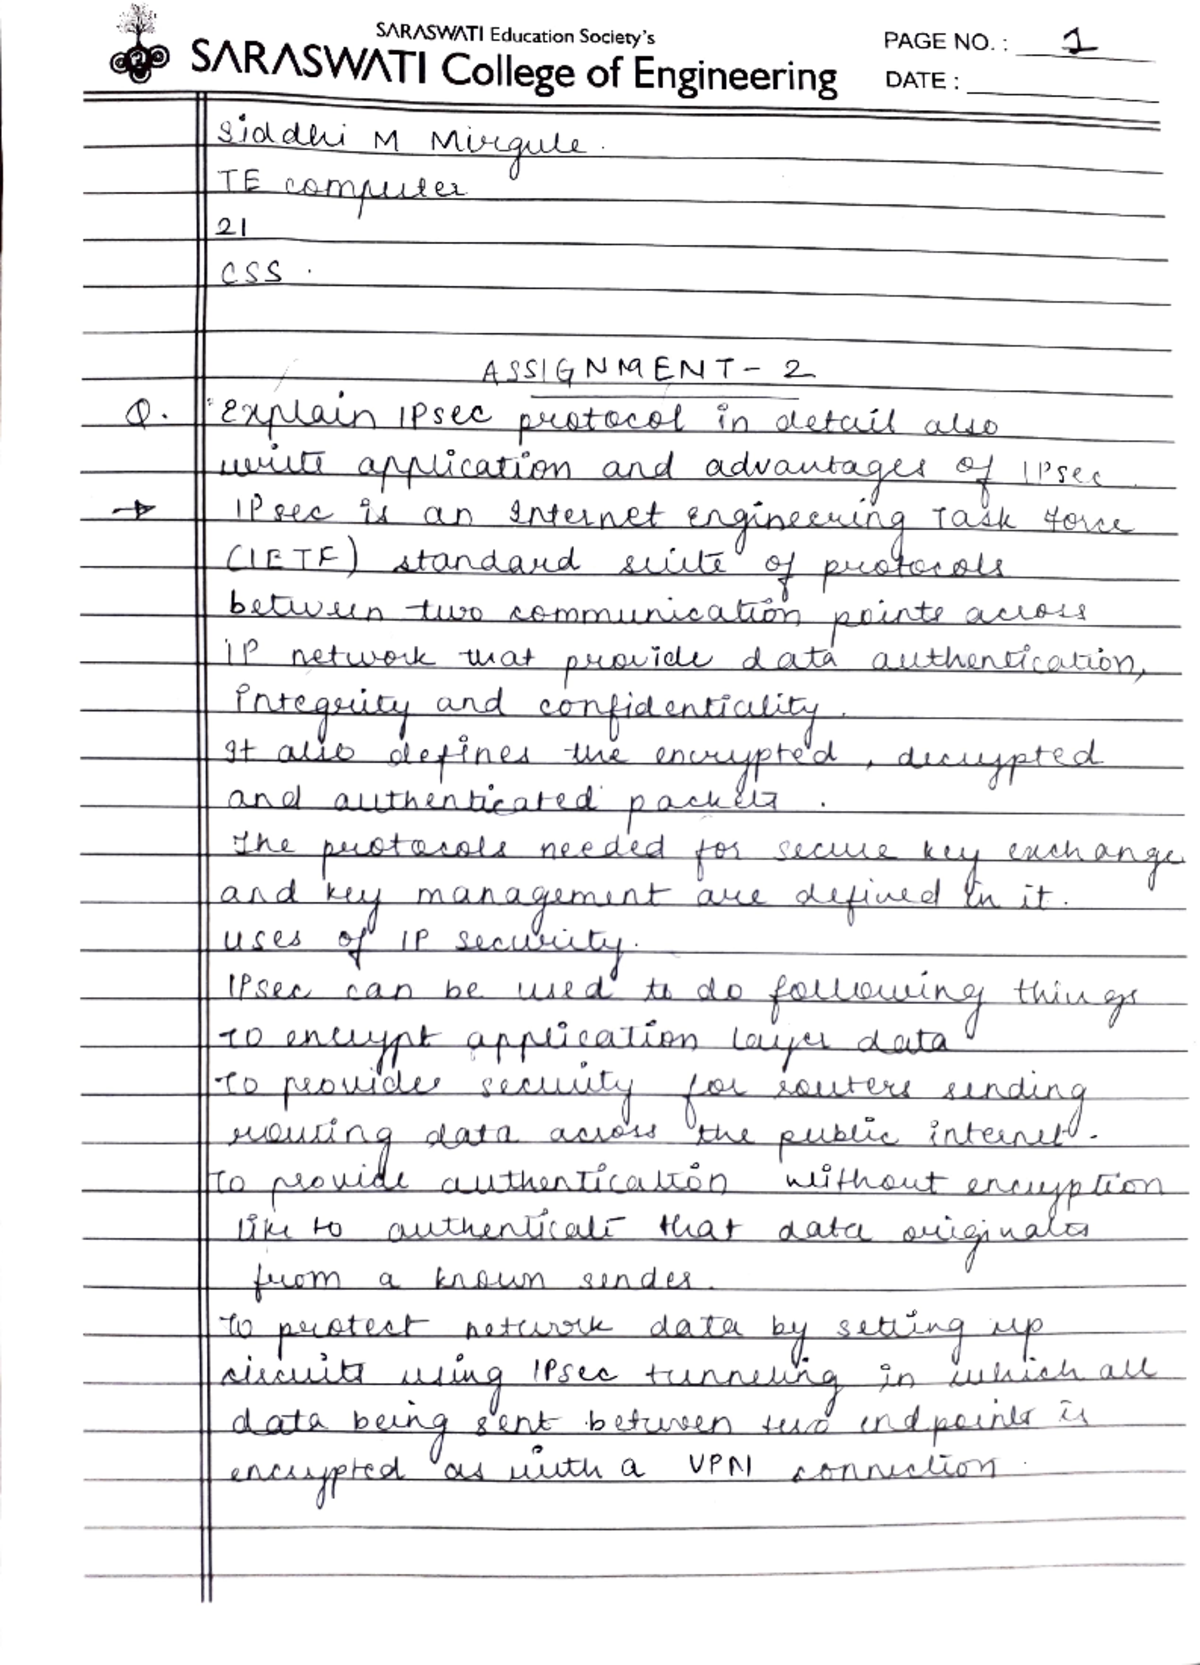 SARASWATI Education Society's
SARASWATI College of Engineering
PAGE NO. : 1
DATE :
Siddhi M Mirgule.
TE computer
21
CSS.
ASSIGNMENT - 2
Q. Explain IPsec protocol in detail also
write application and advantages of IPsec.
→ IPsec is an Internet engineering Task Force
(IETF) standard suite of protocols
between two communication points across
IP network that provide data authentication,
integrity and confidentiality.
It also defines the encrypted, decrypted
and authenticated packets.
The protocols needed for secure key exchange
and key management are defined in it.
uses of IP security.
IPsec can be used to do following things
To encrypt application layer data
To provides security for routers sending
routing data across the public internet.
To provide authentication without encryption
like to authenticate that data originates
from a known sender.
To protect network data by setting up
circuits using IPsec tunneling in which all
data being sent between two endpoints is
encrypted as with a VPN connection.